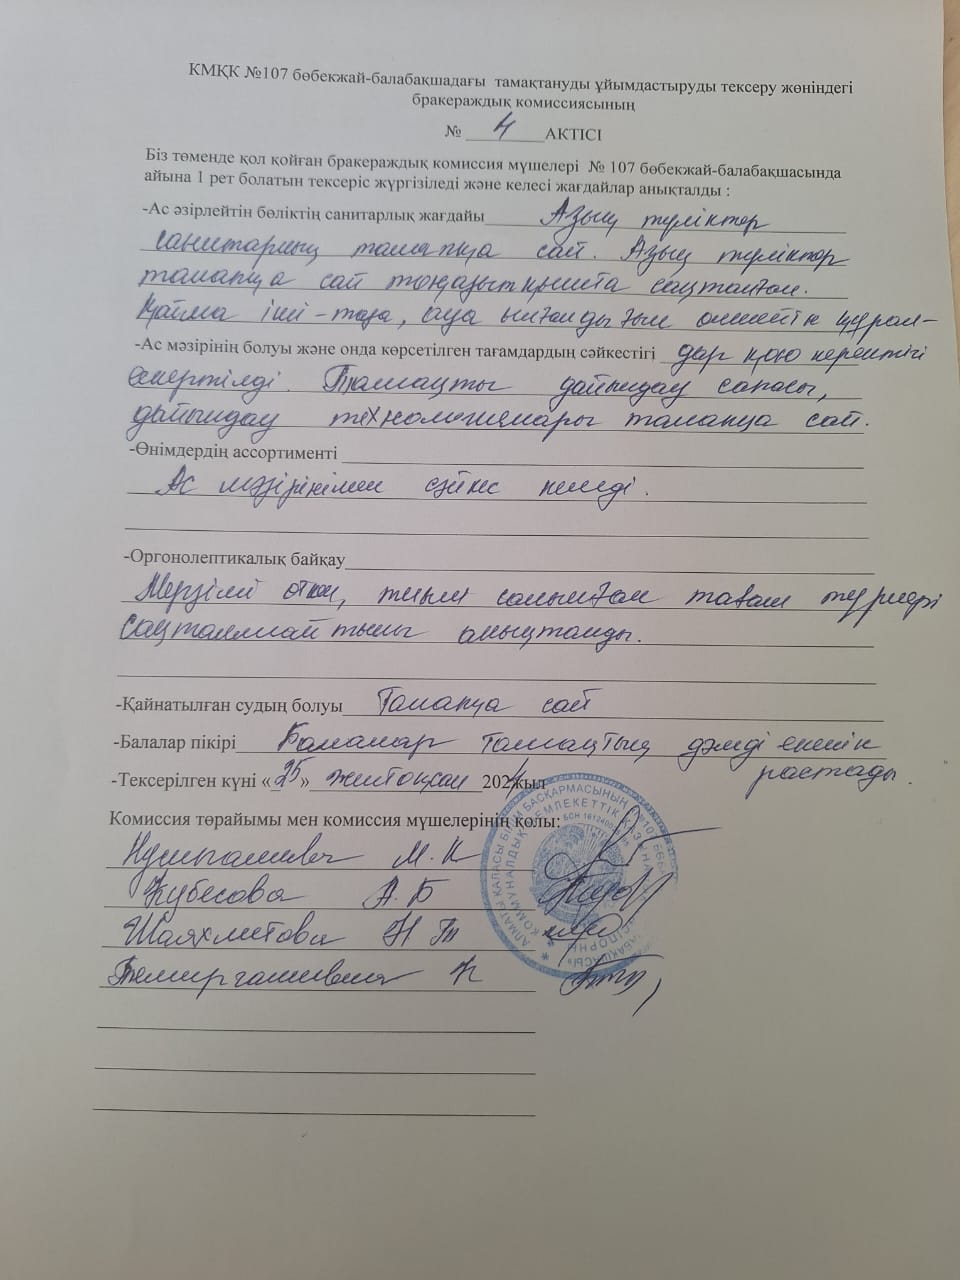 КМҚК №107 бөбекжай-балабақшадағы тамақтануды ұйымдастыруды тексеру жөніндегі
бракераждық комиссиясының
№ 4 АКТІСІ
Біз төменде қол қойған бракераждық комиссия мүшелері № 107 бөбекжай-балабақшасында
айына 1 рет болатын тексеріс жүргізіледі және келесі жағдайлар анықталды :
-Ас әзірлейтін бөліктің санитарлық жағдайы Азық түліктер
санитарлық талапқа сай. Азық түліктер
талапқа сай тоңазытқышта сақталған.
Қойма іші - таза, ауа ылғалдығын өлшейтін құрал-
-Ас мәзірінің болуы және онда көрсетілген тағамдардың сәйкестігі дар қою керектігі
ескертілді. Тамақты дайындау сапасы,
дайындау технологиялары талапқа сай.
-Өнімдердің ассортименті
Ас мәзірінімен сәйкес келеді.
-Оргонолептикалық байқау
Мерзімі өткен, тиым салынған тағам түрлері
сақталмайтыны анықталды.
-Қайнатылған судың болуы Талапқа сай
-Балалар пікірі Балалар тамақтың дәмді екенін
растады.
-Тексерілген күні «25» желтоқсан 2024жыл
Комиссия төрайымы мен комиссия мүшелерінің қолы:
М. К
Кубесова А. Б
Шаяхметова Н Т
К